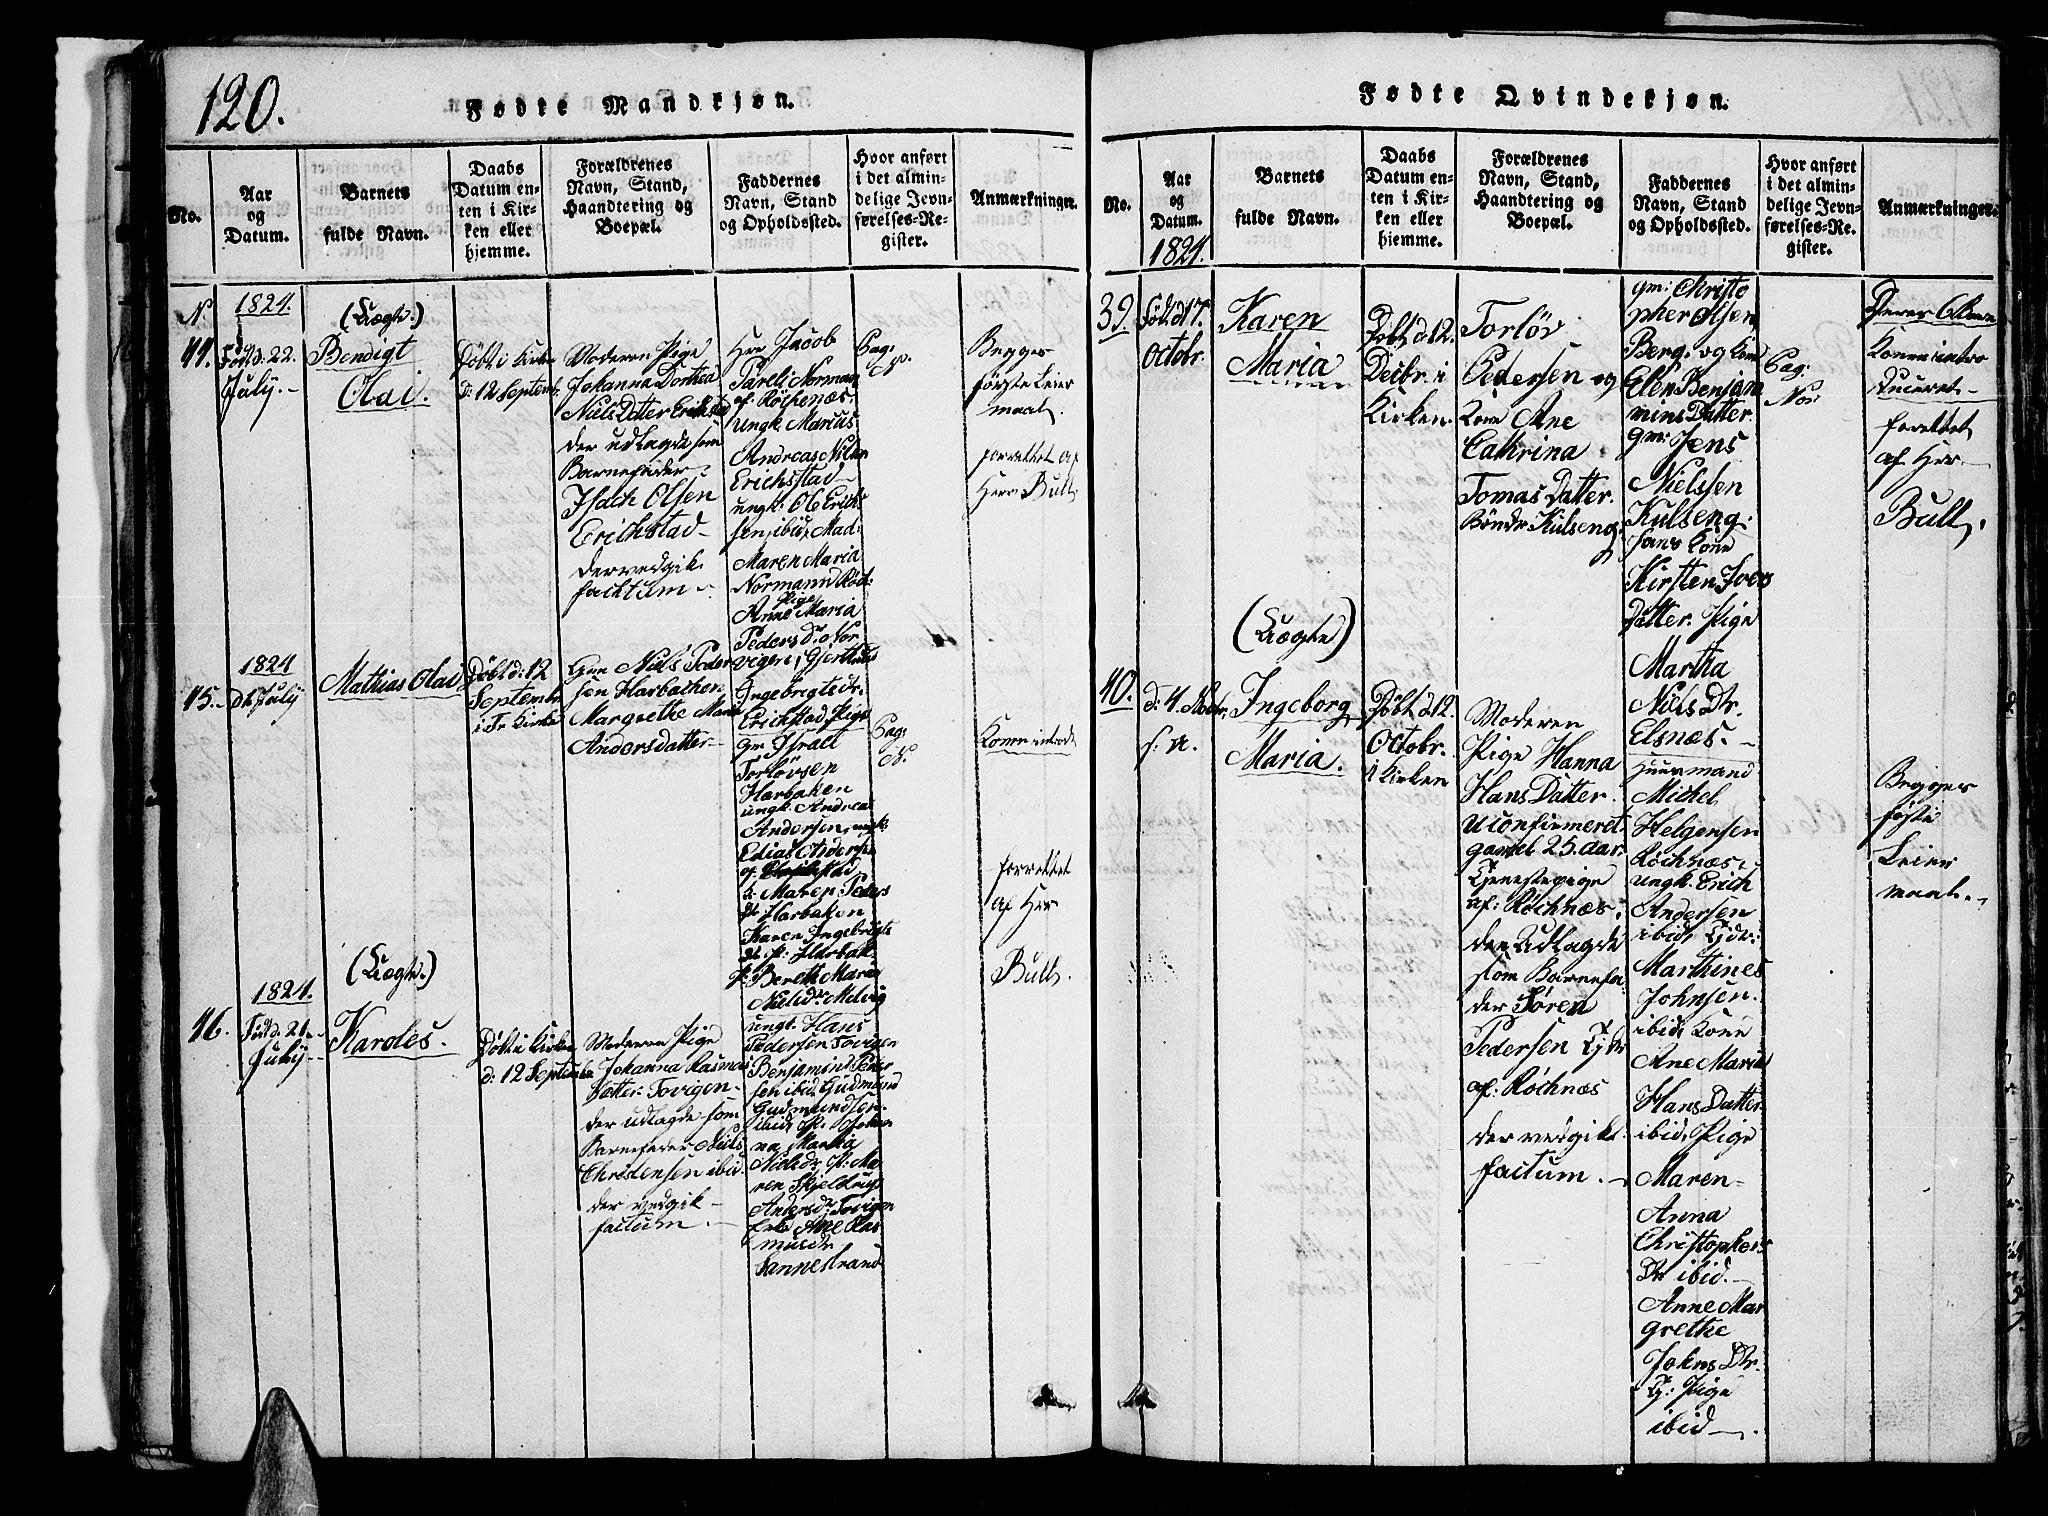 120.
Fødte Mandkjøn.
No.
Aar
og
Datum.
Barnets
fulde Navn.
Daabs
Datum en-
ten i Kir-
ken eller
hjemme.
Forældrenes
Navn, Stand,
Haandtering og
Boepæl.
Faddernes
Navn, Stand
og Opholdssted.
Hvor anført
i det almin-
delige Jevn-
førelses-Re-
gister.
Anmærkninger.
N
1824.
Fød d: 22
July.
(Uægte.)
Bendigt
Olai.
Døbt i Kirke
d: 12 Septemb.
Moderen Pige
Johanna Dorthea
Niels Datter Erikstad
der udlagde som
Barnefader
Isach Olsen
Erichstad
der vedgik
facktum
Hr Jacob
Parelli Norman
af Röchenæs
Ungk. Marius
Andreas Nilsen
Erichstad
ungk: Ole Erichs
sen ibid, Mad:
Maren Maria
Normann Röch:
Pige
Anne Maria
Peders Dr
Ingebrigtsdr.
Erichstad Pige
Pag:
N.
Begges
første Leier
maal.
forrettet af
Herr Bull,
45.
1824
July
Mathias Olai
Døbt d: 12
Septembr
i Kirke
Gm Niels Peder
sen Harbachen
Margrethe Maria
Andersdatter
gm Israel
Torlövsen
Harbaken
ungk. Andreas
Andersen, ungk.
Maren Peders
dr Harbaken
Karen Ingebrigts
dr. Harbak.
Bereth Maria
Nielsdr Melvig
Pag:
N.
Konen introd
forrettet
af Hrr
Bull.
46.
1824.
Fød d. 21
July
(Uægte.)
Karoles.
Døbt i Kirken
d: 12 Septemb
Moderen Pige
Johanna Rasmus
Datter Tovigen
der udlagde som
Barnefader Niels
Christensen ibid.
der vedgik
factum.
ungk. Hans
Pedersen Tovigen
Benjamin Peder
sen ibid, Gudmund
Gudmundsen
ibid, P. Johan
na Martha
Nielsdr P: Ma
ren Skjeldrup
Andersd: Tovigen
Enke Ane Ras
musdr
Sannestrand
Fødte Qvindekjøn.
No.
Aar
og
Datum.
1824.
Barnets
fulde Navn.
Daabs
Datum en-
ten i Kir-
ken eller
hjemme.
Forældrenes
Navn, Stand,
Haandtering og
Boepæl.
Faddernes
Navn, Stand
og Opholdssted.
Hvor anført
i det almin-
delige Jevn-
førelses-Re-
gister.
Anmærkninger.
39.
Fød d 17.
Octobr.
Karen
Maria
Døbt d 12.
Decbr. i
Kirken.
Torlöv
Pedersen og
Kone Ane
Cathrina
Tomas Datter.
Bönder Kulseng
gm: Christo
pher Olsen
Berg. og Kone
Elen Benjam
mins Datter.
gm: Jens
Nielssen
Kulseng.
Hans Kone
Kirsten Ivers
Datter. Pige
Martha
Niels Dr.
Elsnæs.
Pag:
No:
Konen intro
duceret
forrettet
af Hrr
Bull.
40.
d: 4.
(Uægte)
Ingeborg
Maria.
Døbt d 12.
Octobr.
i Kirken
Moderen
Pige Hanna
Hans Datter.
Uconfirmeret
gamel 25. Aar.
Tjenestepige
af: Röchnæs.
der Udlagde
som Barnefa
der Sören
Pedersen
af: Röchnæs
der vedgik
factum.
Huusmand
Michel
Helgensen
Röchnæs.
ungk. Erich
Andersen
ibid,
Marthines
Johnsen.
ibid, Kone
Ane Maria
Hans Datter.
ibid, Pige
Maren
Anna
Christophers
Dr ibid.
Anne Mar
grethe
Johns Dr.
T: Pige
ibid.
Begges
første
Leier
maal.